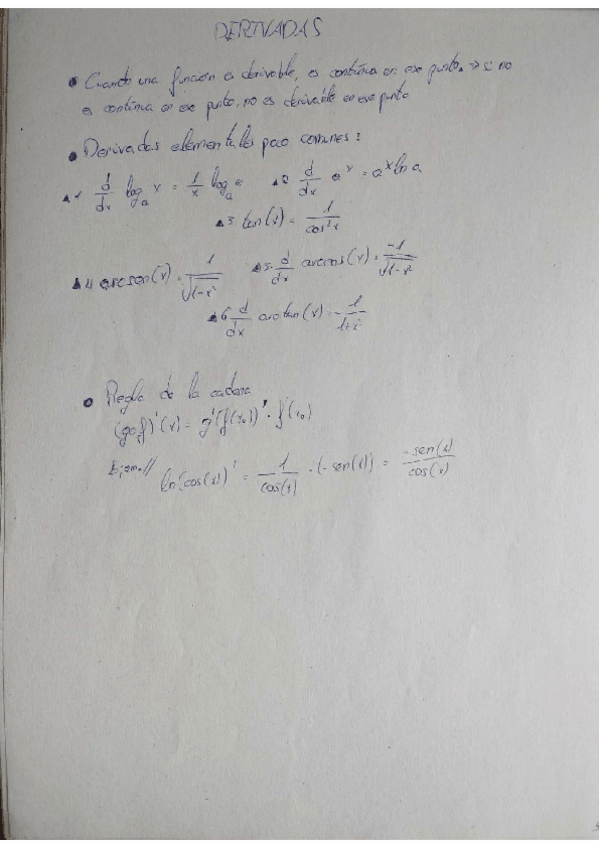 DERIVADAS
• Cuando una función es derivable, es continua en ese punto. → si no
es continua en ese punto, no es derivable en ese punto
• Derivadas elementales poco comunes:
▲1. d/dx logₐ x = 1/x logₐ e ▲2 d/dx aˣ = aˣ ln a
▲3. tan(x) = 1/cos²x
▲4 arcsen(x) = 1/√1-x² ▲5. d/dx arccos(x) = -1/√1-x²
▲6 d/dx arctan(x) = - 1/1+x²
• Regla de la cadena
(g∘f)'(x) = g'(f(x₀))' · f'(x₀)
ln(cos(x))' = 1/cos(x) · (-sen(x)) = -sen(x)/cos(x)